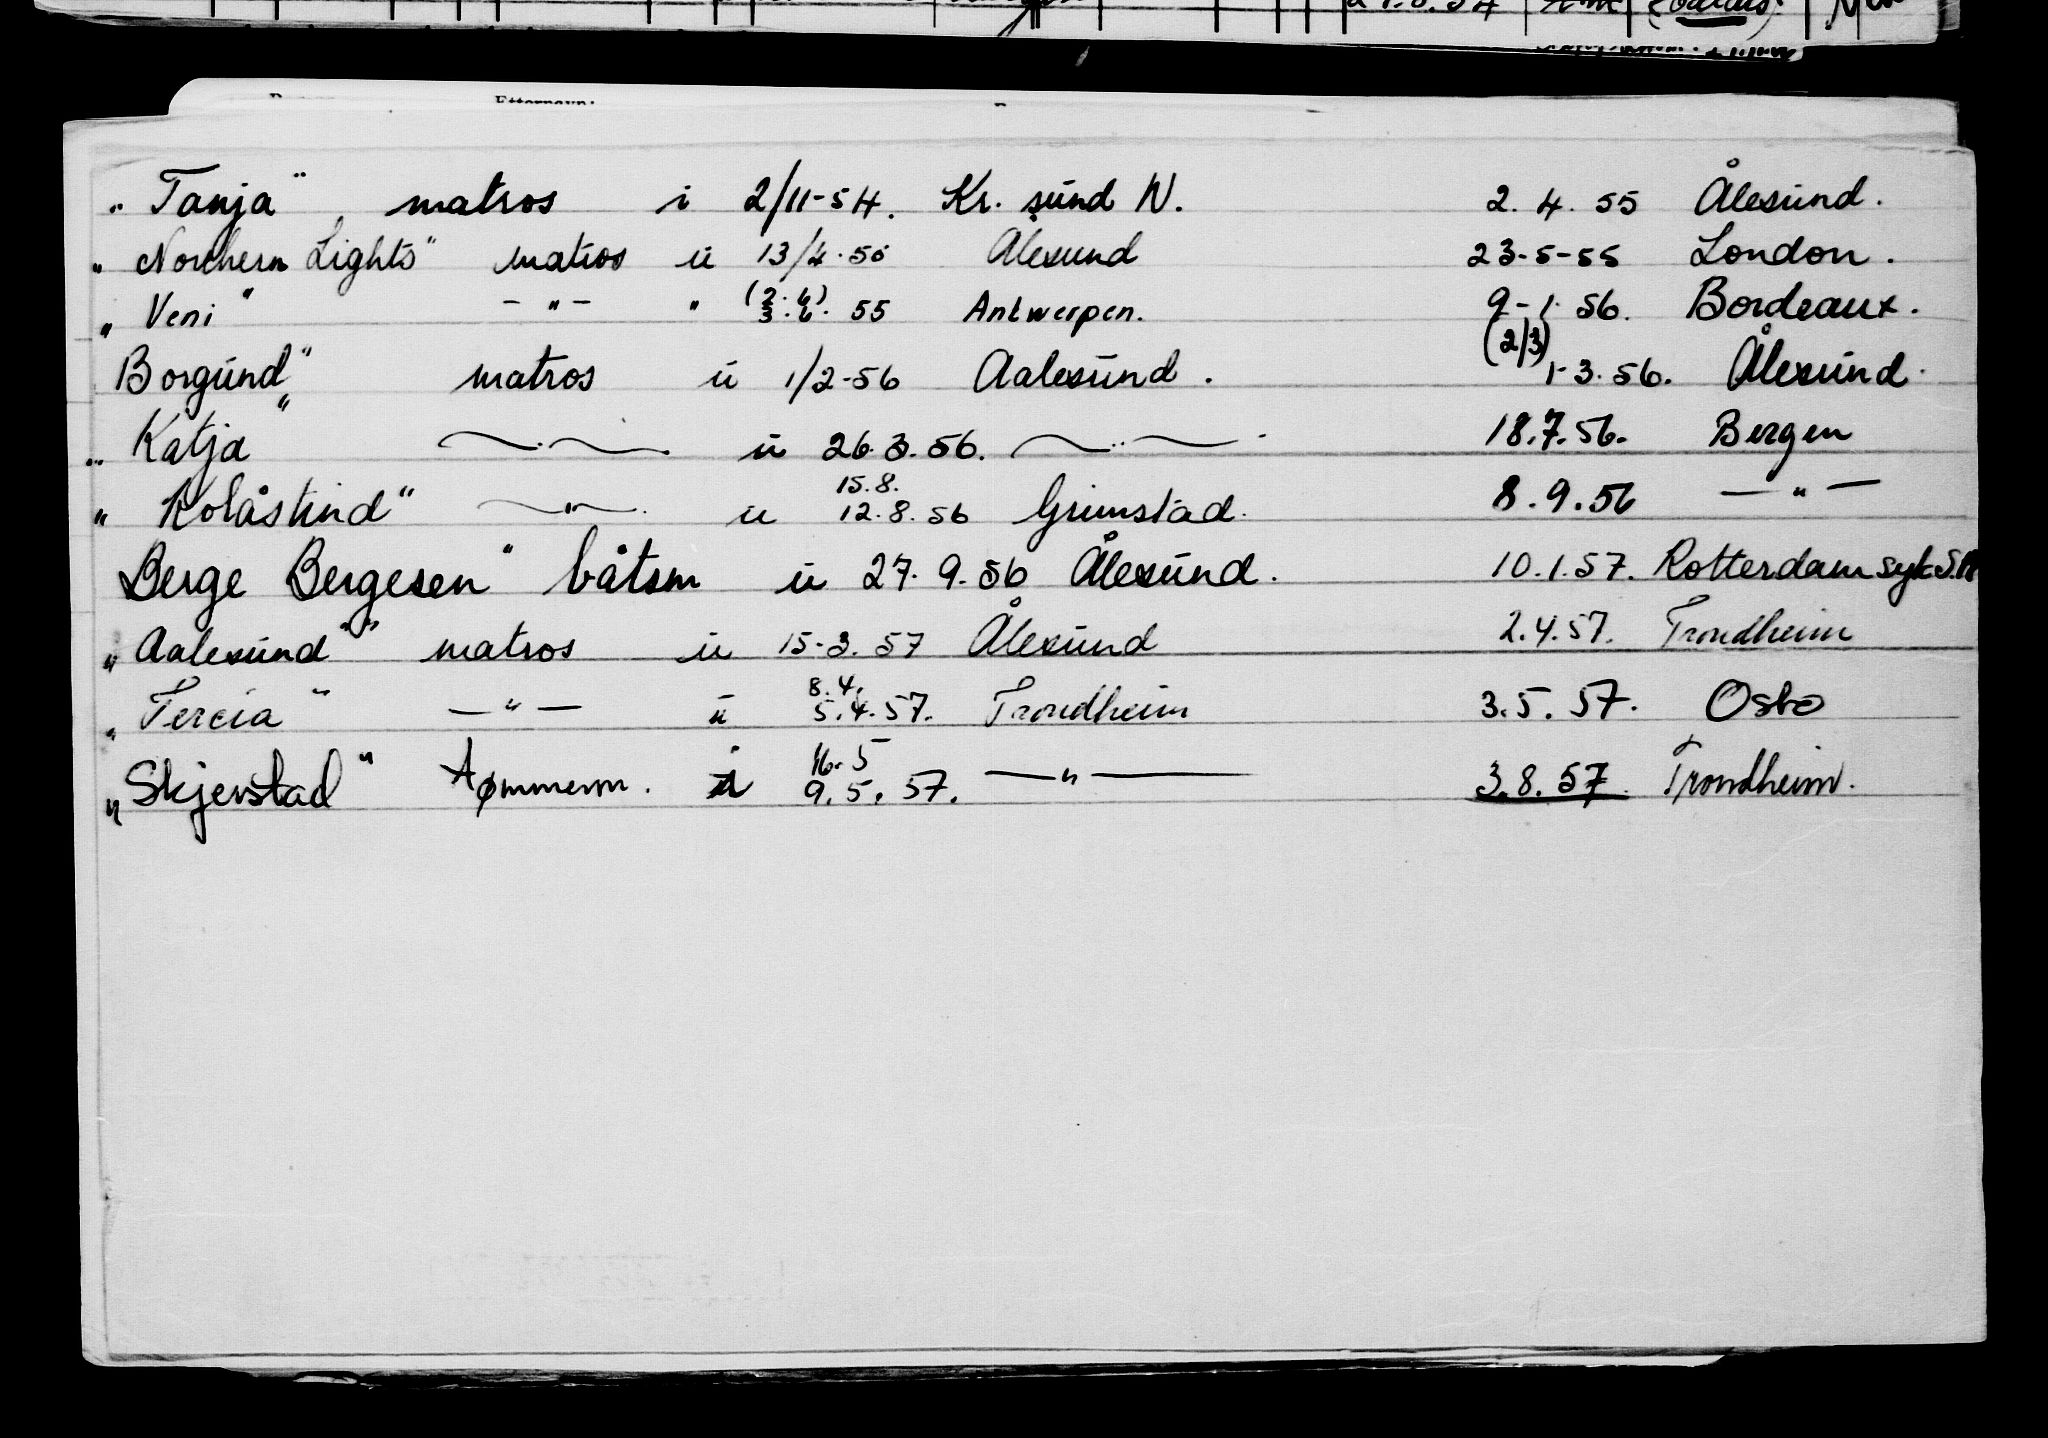 Etternavn:
„Tanja" matros i 2/11-54. Kr. sund N. 2. 4. 55 Ålesund.
„Northern Lights" matros u 13/4.55 Ålesund 23-5-55 London.
„Veni" - " - " (2.6) 3.6. 55 Antwerpen. 9-1-56. Bordeaux.
Borgund" matros u 1/2-56 Aalesund. (2/3) 1-3.56. Ålesund.
„Katja" — " — u 26.3.56. — " — 18.7.56. Bergen
„Kolåstind" — " — u 15.8. 12.8.56 Grimstad. 8.9.56 — " —
Berge Bergesen" båtsm u 27.9.56 Ålesund. 10.1.57. Rotterdam syk
„Aalesund" matros u 15-3.57 Ålesund 2.4.57. Trondheim
„Tercia" — " — u 8.4. 5.4.57. Trondheim 3.5.57. Oslo
„Skjerstad" tømmerm. i 16.5 9.5.57. — " — 3.8.57. Trondheim.